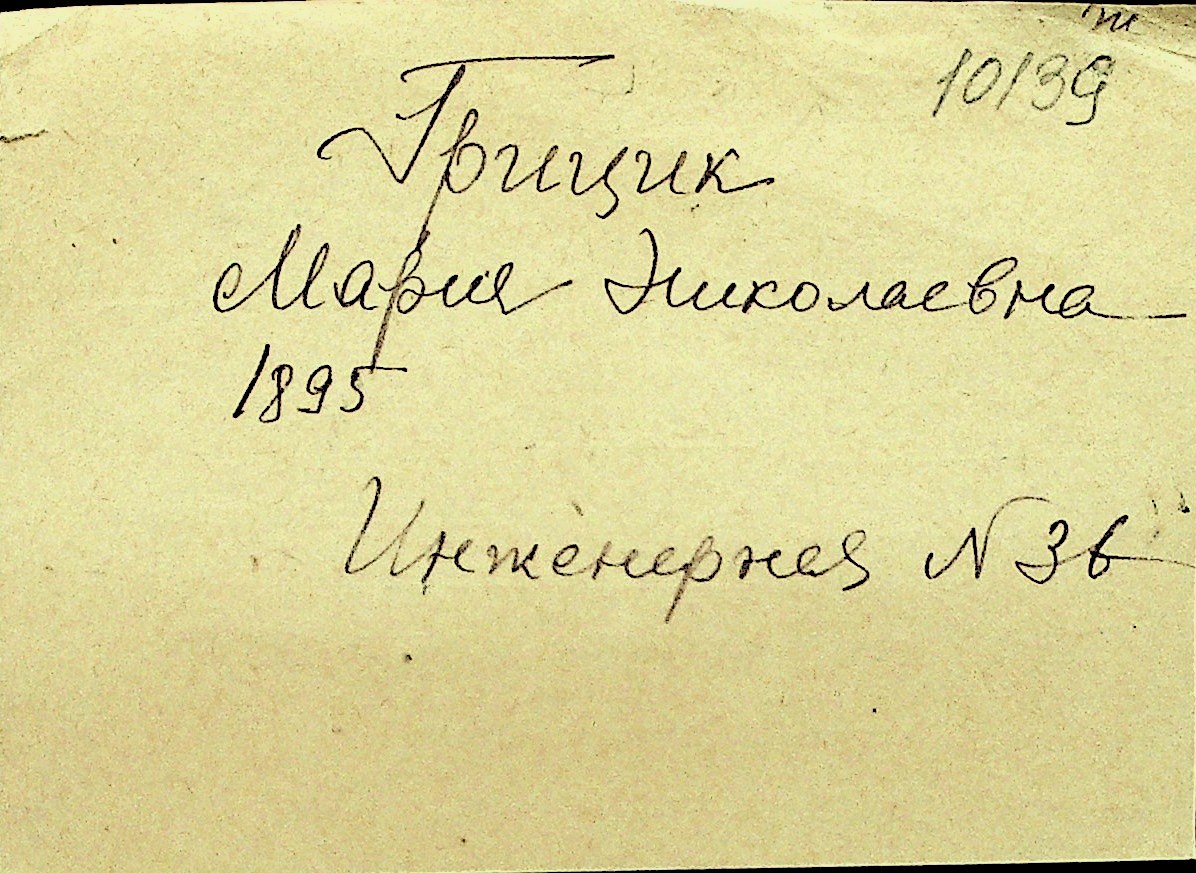 10139
Грицик
Мария Николаевна
1895
Инженерная N 3в